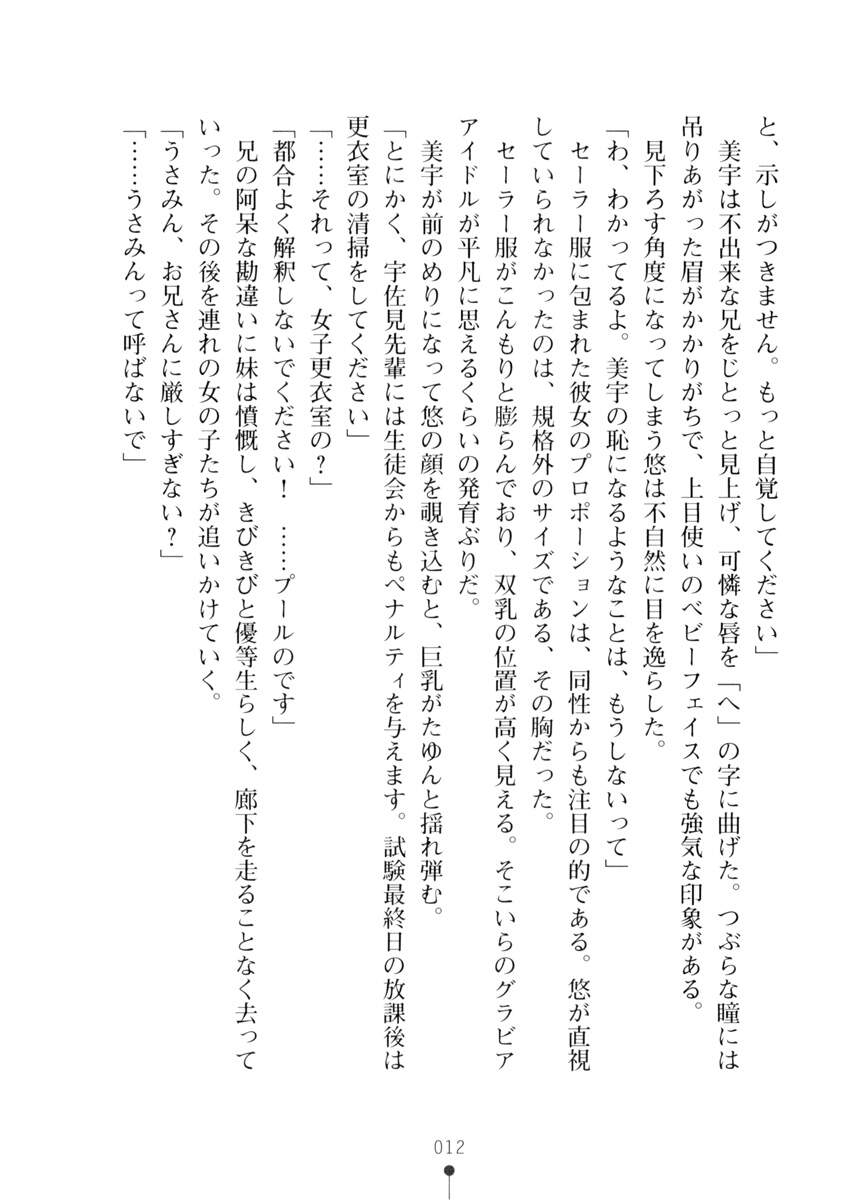 と、示しがつきません。もっと自覚してください」
　美宇は不出来な兄をじとっと見上げ、可憐な唇を「へ」の字に曲げた。つぶらな瞳には
吊りあがった眉がかかりがちで、上目使いのベビーフェイスでも強気な印象がある。
　見下ろす角度になってしまう悠は不自然に目を逸らした。
「わ、わかってるよ。美宇の恥になるようなことは、もうしないって」
　セーラー服に包まれた彼女のプロポーションは、同性からも注目の的である。悠が直視
していられなかったのは、規格外のサイズである、その胸だった。
　セーラー服がこんもりと膨らんでおり、双乳の位置が高く見える。そこいらのグラビア
アイドルが平凡に思えるくらいの発育ぶりだ。
　美宇が前のめりになって悠の顔を覗き込むと、巨乳がたゆんと揺れ弾む。
「とにかく、宇佐見先輩には生徒会からもペナルティを与えます。試験最終日の放課後は
更衣室の清掃をしてください」
「……それって、女子更衣室の？」
「都合よく解釈しないでください！　……プールのです」
　兄の阿呆な勘違いに妹は憤慨し、きびきびと優等生らしく、廊下を走ることなく去って
いった。その後を連れの女の子たちが追いかけていく。
「うさみん、お兄さんに厳しすぎない？」
「……うさみんって呼ばないで」
012